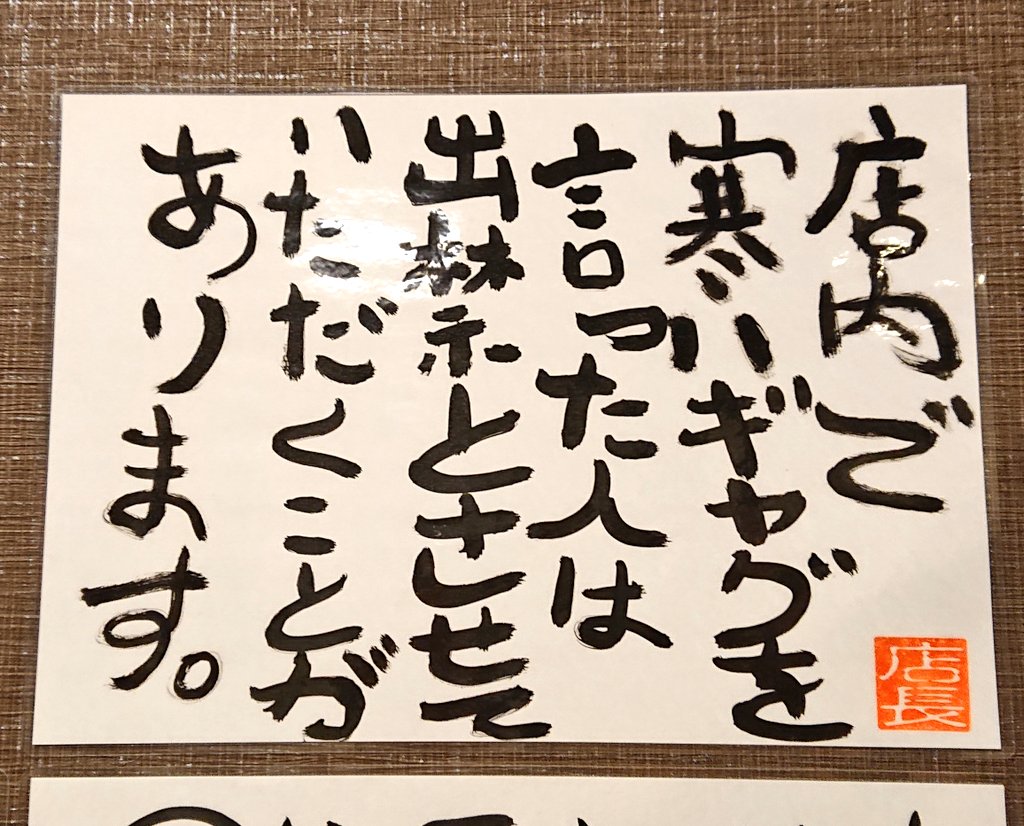 店内で
寒いギャグを
言った人は
出禁とさせて
いただくことが
あります。
店長